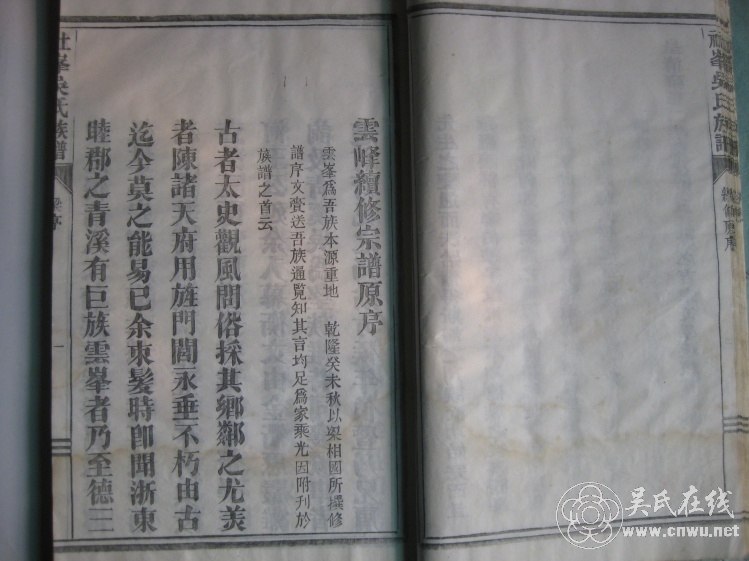 雲峰續修宗譜原序
雲峯爲吾族本源重地　乾隆癸未秋以梁相國所撰修
譜序文賫送吾族通覧知其言均足爲家乘光因附刊於
族譜之首云
古者太史觀風問俗採其鄉鄰之尤美
者陳諸天府用旌門閭永垂不朽由古
迄今莫之能易已余束髮時卽聞浙東
睦郡之青溪有巨族雲峯者乃至德三
社峯吳氏族譜
梁序
一
社峯吳氏族譜
吴氏在线
www.cnwu.net